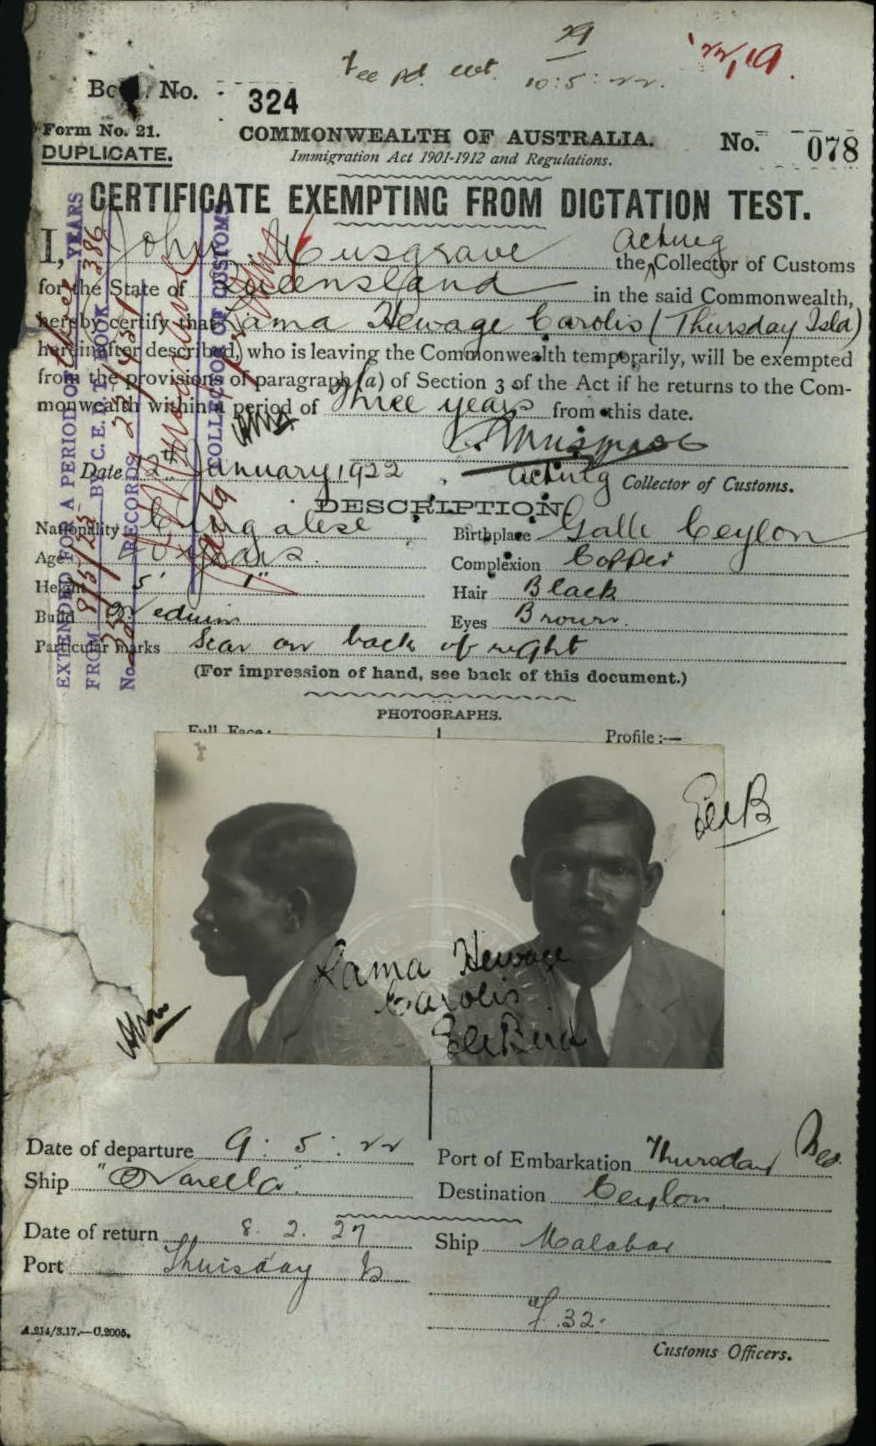 29
Fee pd. 10:5:22.
Book No. 324
Form No. 21.
DUPLICATE.
COMMONWEALTH OF AUSTRALIA.
Immigration Act 1901-1912 and Regulations.
No. 078
CERTIFICATE EXEMPTING FROM DICTATION TEST.
I, John Musgrave Acting the Collector of Customs
for the State of Queensland in the said Commonwealth,
hereby certify that Kama Hewage Carolis (Thursday Isld)
hereinafter described, who is leaving the Commonwealth temporarily, will be exempted
from the provisions of paragraph (a) of Section 3 of the Act if he returns to the Com-
monwealth within a period of Three years from this date.
Date January 1922
Acting Collector of Customs.
DESCRIPTION.
Nationality Cingalese
Birthplace Galle Ceylon
Age years
Complexion Copper
Height 5' 1"
Hair Black
Build Medium
Eyes Brown.
Particular marks Scar on back of right
(For impression of hand, see back of this document.)
PHOTOGRAPHS.
Full Face:
Profile:—
Kama Hewage
Carolis
EXTENDED FOR A PERIOD OF Three YEARS
FROM 8/5/25 BY C.E.D.T. BOOK 386
No. RECORDS
COLLECTOR OF CUSTOMS
Date of departure 9:5:22
Port of Embarkation Thursday Is.
Ship "Marella"
Destination Ceylon.
Date of return 8.2.27
Ship Malabar
Port Thursday Is
32.
A.214/3.17.—C.2005.
Customs Officers.